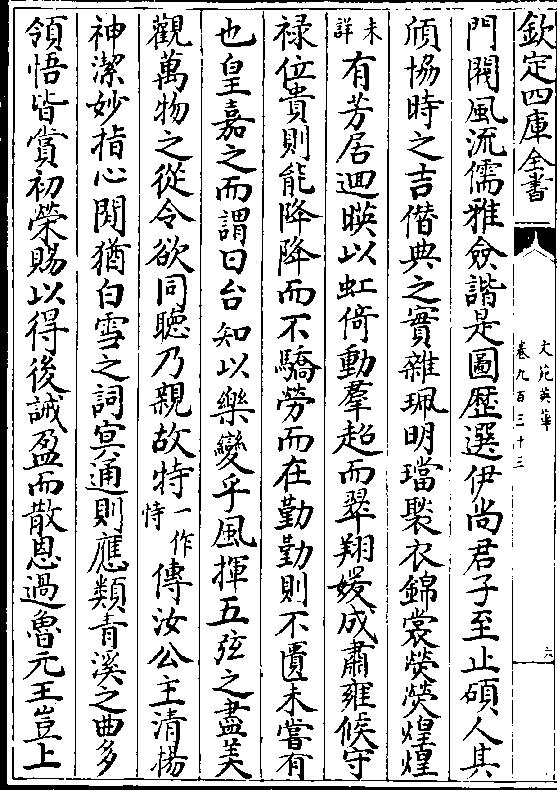 欽定四庫全書
文苑英華
卷九百三十三
六
門閥風流儒雅僉諧是圖歷選伊尚君子至止碩人其
頎協時之吉僭典之實雜珮明璫褧衣錦裳熒熒煌煌
未詳有芳居迴暎以虹倚動羣超而翠翔媛成肅雍候守
祿位貴則能降降而不驕勞而在勤勤則不匱未嘗有
也皇嘉之而謂曰台知以樂變乎風揮五弦之盡美
觀萬物之從令欲同聽乃親故特一作恃傳汝公主清揚
神潔妙指心閱猶白雪之詞冥通則應類青溪之曲多
領悟皆賞初榮賜以得後誡盈而散恩過魯元王豈上